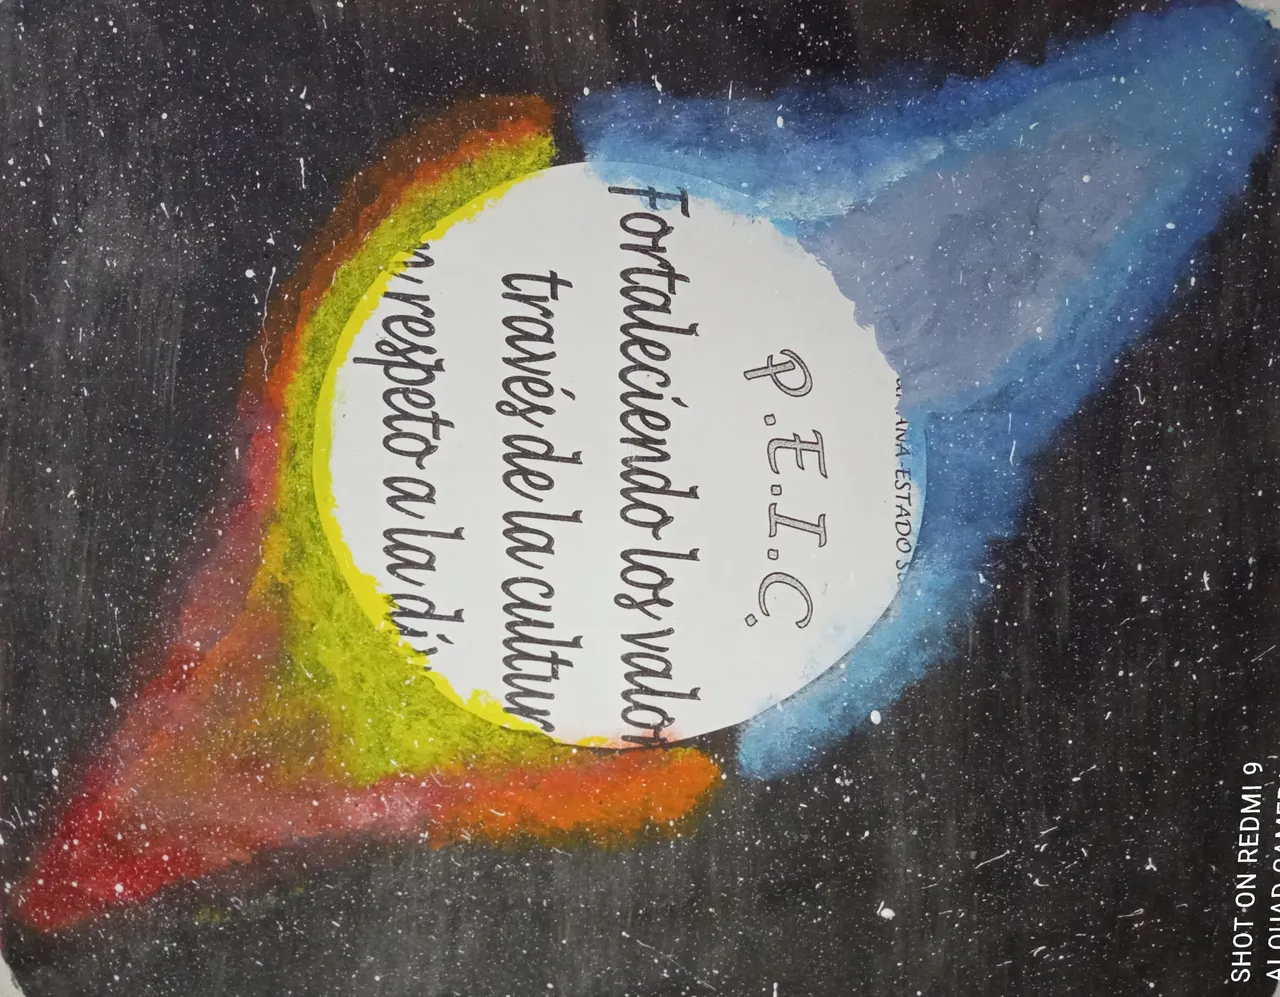 ANA-ESTADO
P.E.I.C.
Fortaleciendo los valor
través de la cultur
respeto a la di
SHOT ON REDMI 9
AI QUAD CAMERA